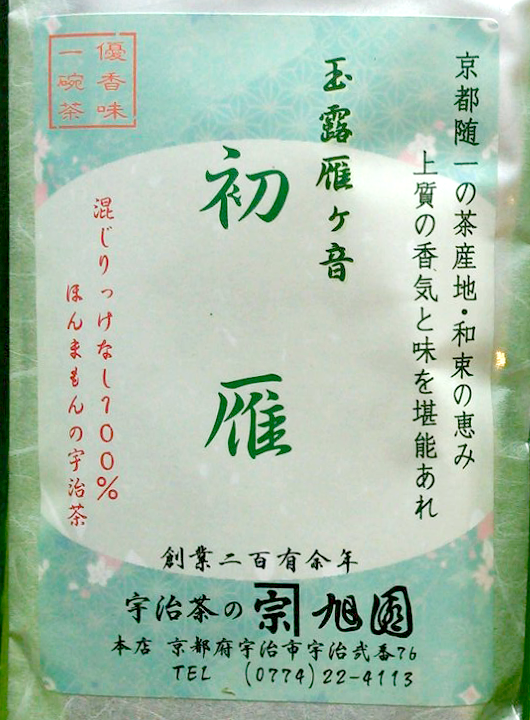 京都随一の茶産地・和束の恵み
上質の香気と味を堪能あれ
玉露雁ヶ音
初雁
優香味
一碗茶
混じりっけなし100%
ほんまもんの宇治茶
創業二百有余年
宇治茶の宗旭園
本店 京都府宇治市宇治弐番76
TEL (0774)22-4113